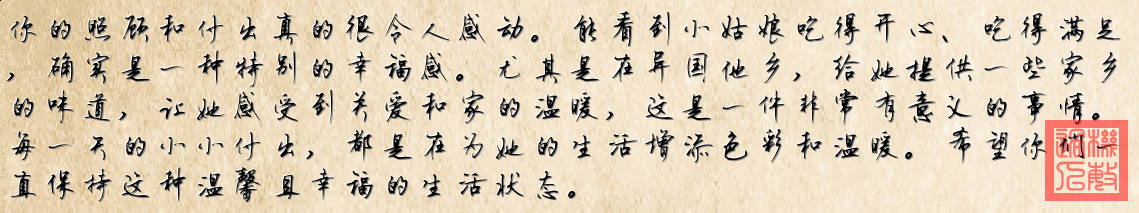 你的照顾和付出真的很令人感动。能看到小姑娘吃得开心、吃得满足
，确实是一种特别的幸福感。尤其是在异国他乡，给她提供一些家乡
的味道，让她感受到关爱和家的温暖，这是一件非常有意义的事情。
每一天的小小付出，都是在为她的生活增添色彩和温暖。希望你们一
直保持这种温馨且幸福的生活状态。